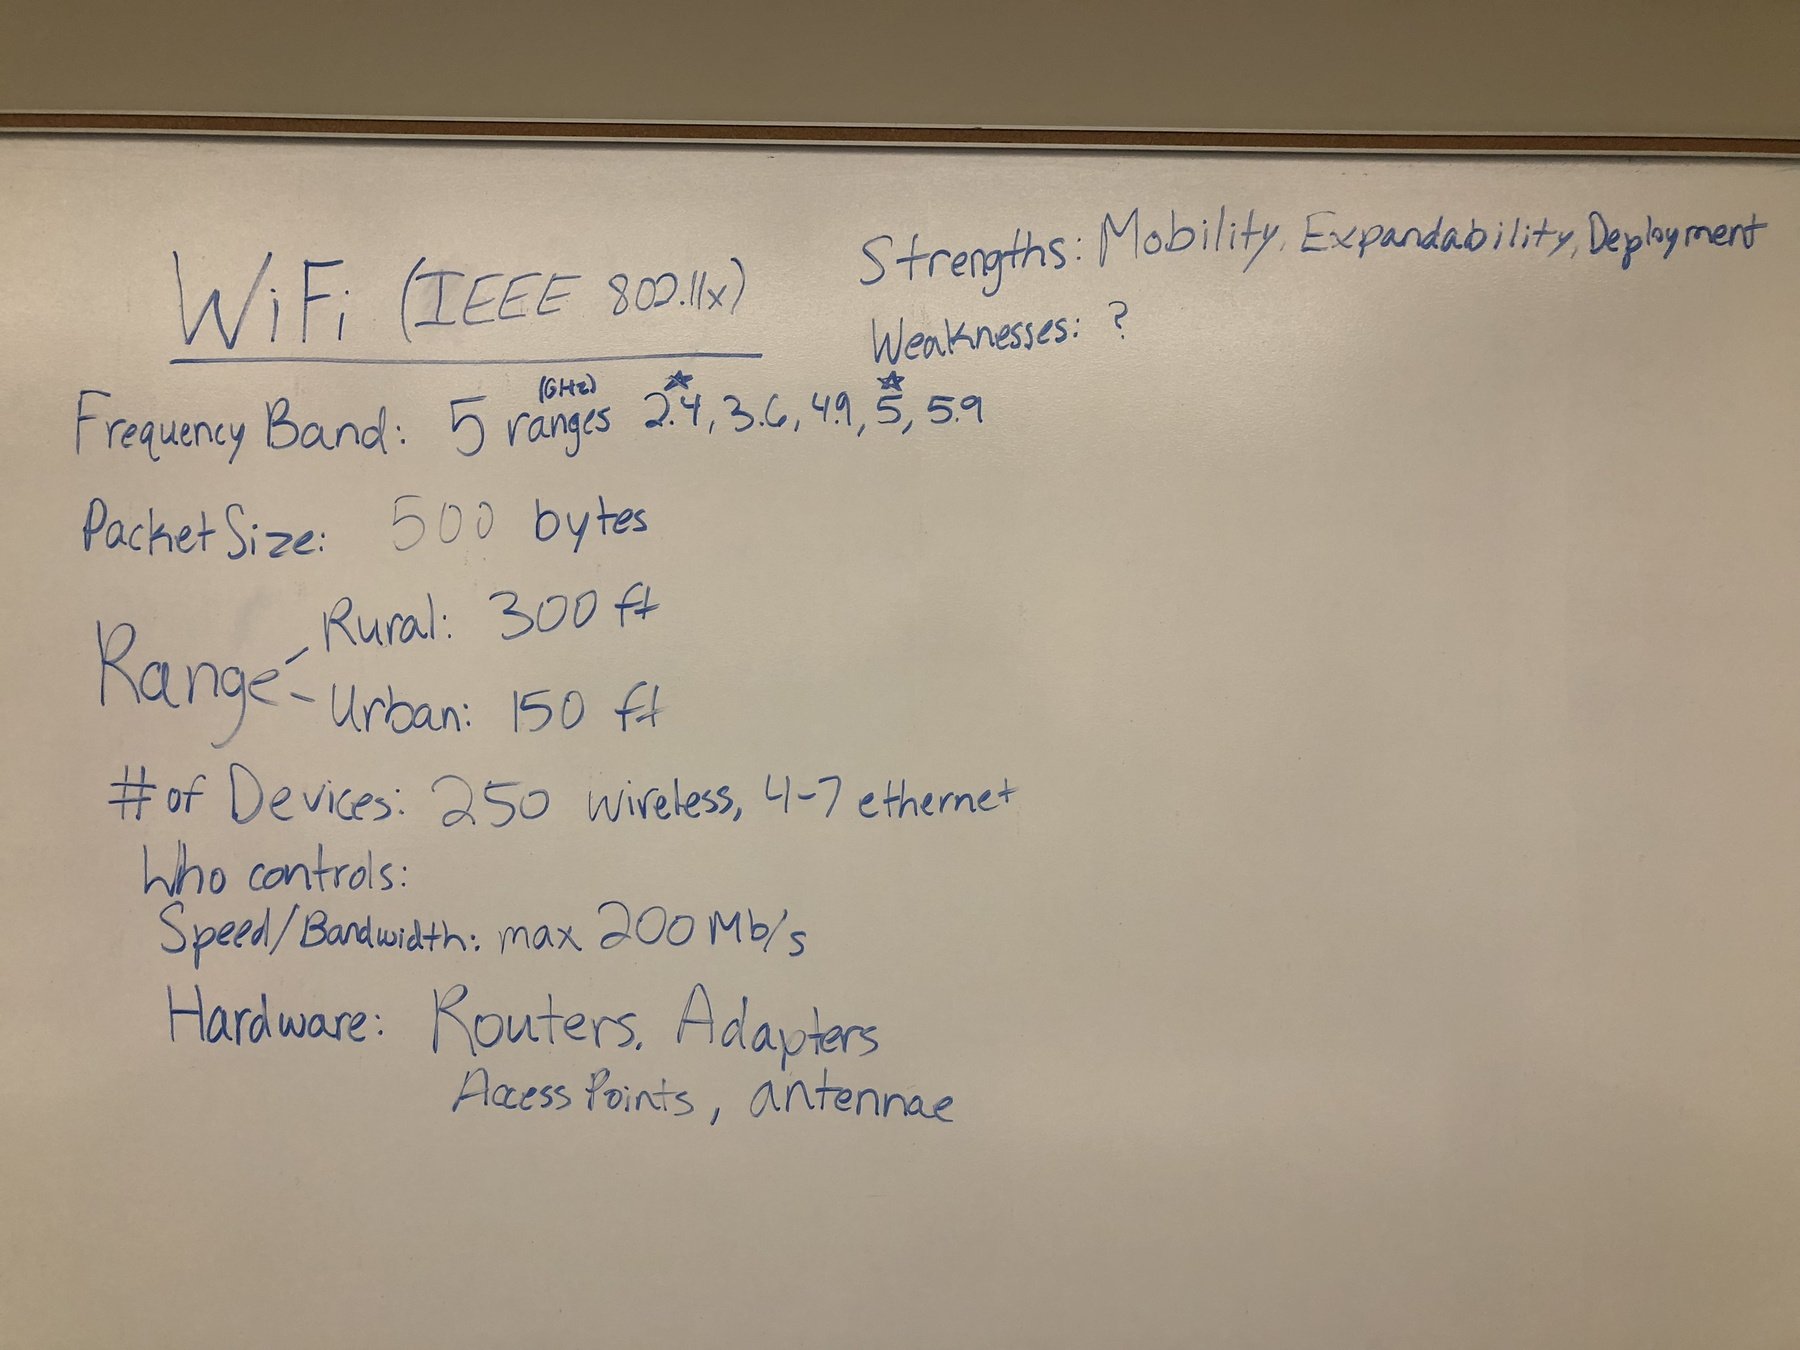 WiFi (IEEE 802.11x)
Strengths: Mobility, Expandability, Deployment
Weaknesses: ?
Frequency Band: 5 ranges (GHz) 2.4, 3.6, 4.9, 5, 5.9
Packet Size: 500 bytes
Range
Rural: 300 ft
Urban: 150 ft
# of Devices: 250 wireless, 4-7 ethernet
Who controls:
Speed/Bandwidth: max 200 Mb/s
Hardware: Routers, Adapters
Access Points, antennae